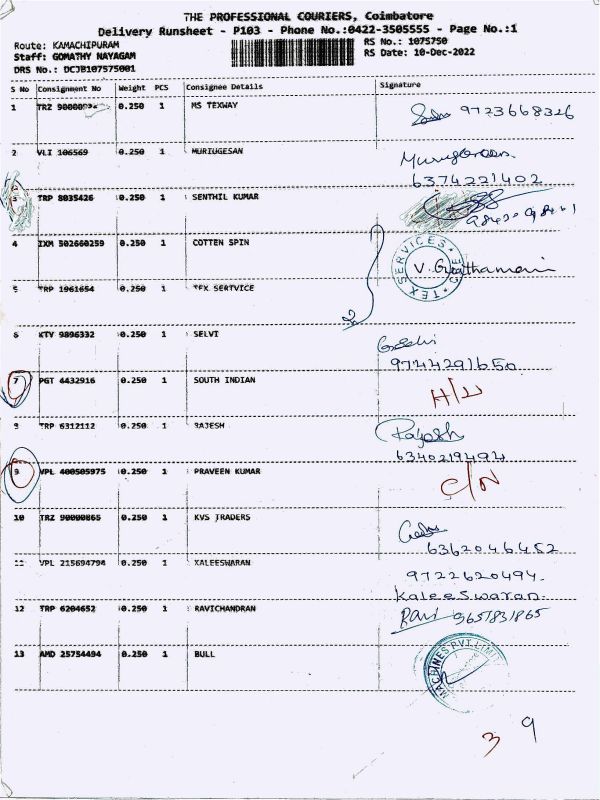 THE PROFESSIONAL COURIERS, Coimbatore
Delivery Runsheet - P103 - Phone No.:0422-3505555 - Page No.:1
Route: KAMACHIPURAM
RS No.: 1075750
Staff: GOMATHY NAYAGAM
RS Date: 10-Dec-2022
DRS No.: DCJB107575001
S No Consignment No Weight PCS Consignee Details Signature
1 TRZ 0.250 1 MS TEXWAY 9723668326
2 VLI 106569 0.250 1 MURIUGESAN Murugesan.
6374221402
3 TRP 8035426 0.250 1 SENTHIL KUMAR
4 IXM 502660259 0.250 1 COTTEN SPIN TEX SERVICES
5 TRP 1961654 0.250 1 TEX SERTVICE
2
6 KTV 9896332 0.250 1 SELVI
9744291650
7 PGT 4432916 0.250 1 SOUTH INDIAN
8 TRP 6312112 0.250 1 RAJESH Rajesh
6340219494
9 VPL 400505975 0.250 1 PRAVEEN KUMAR C/N
10 TRZ 90000865 0.250 1 KVS TRADERS
6362046452
11 VPL 215694794 0.250 1 KALEESWARAN 9722620494.
Kaleeswaran.
12 TRP 6204652 0.250 1 RAVICHANDRAN Ravi 9657831865
13 AMD 25754494 0.250 1 BULL MACHINES PVT LIMIT
3 9